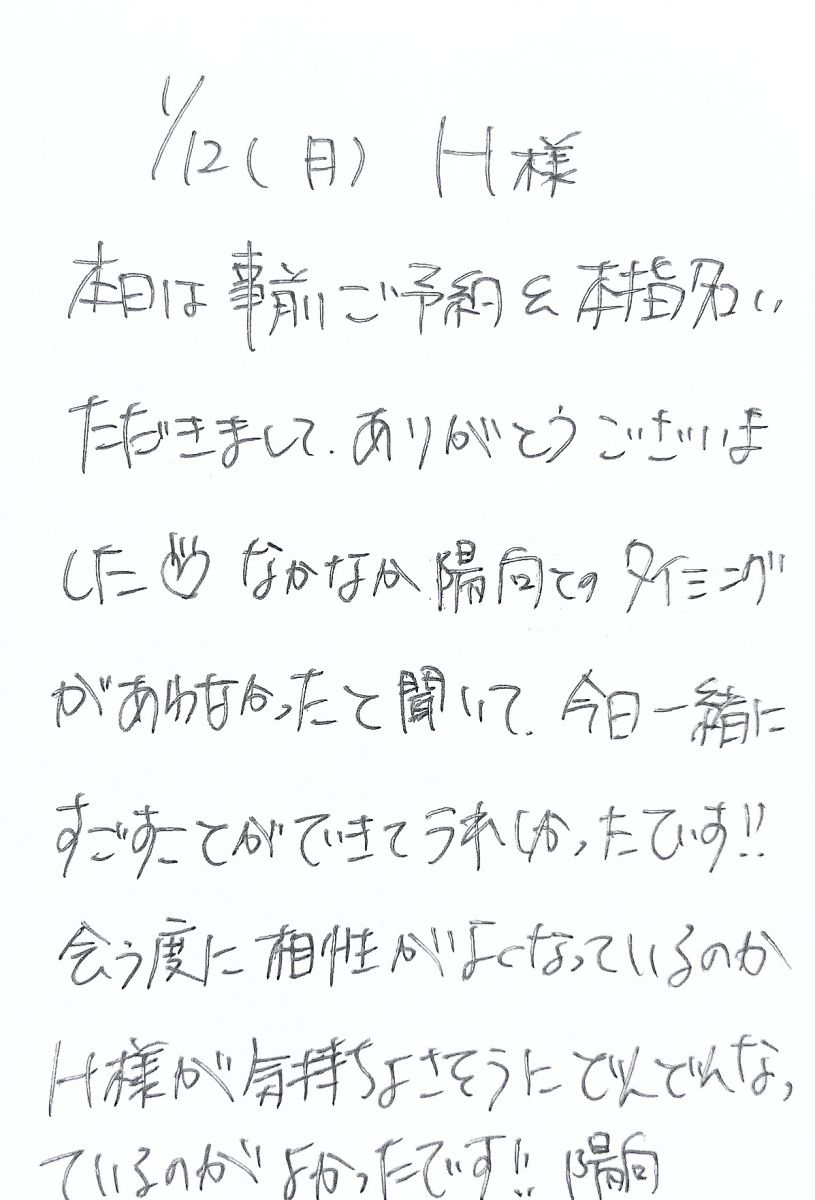 1/12(月) H様
本日は事前ご予約&本指名い
ただきまして、ありがとうございま
した♡ なかなか陽向とのタイミング
があわなかったと聞いて、今日一緒に
すごすことができてうれしかったです!!
会う度に相性がよくなっているのか
H様が気持ちよさそうにどんどんな
っているのがよかったです!! 陽向